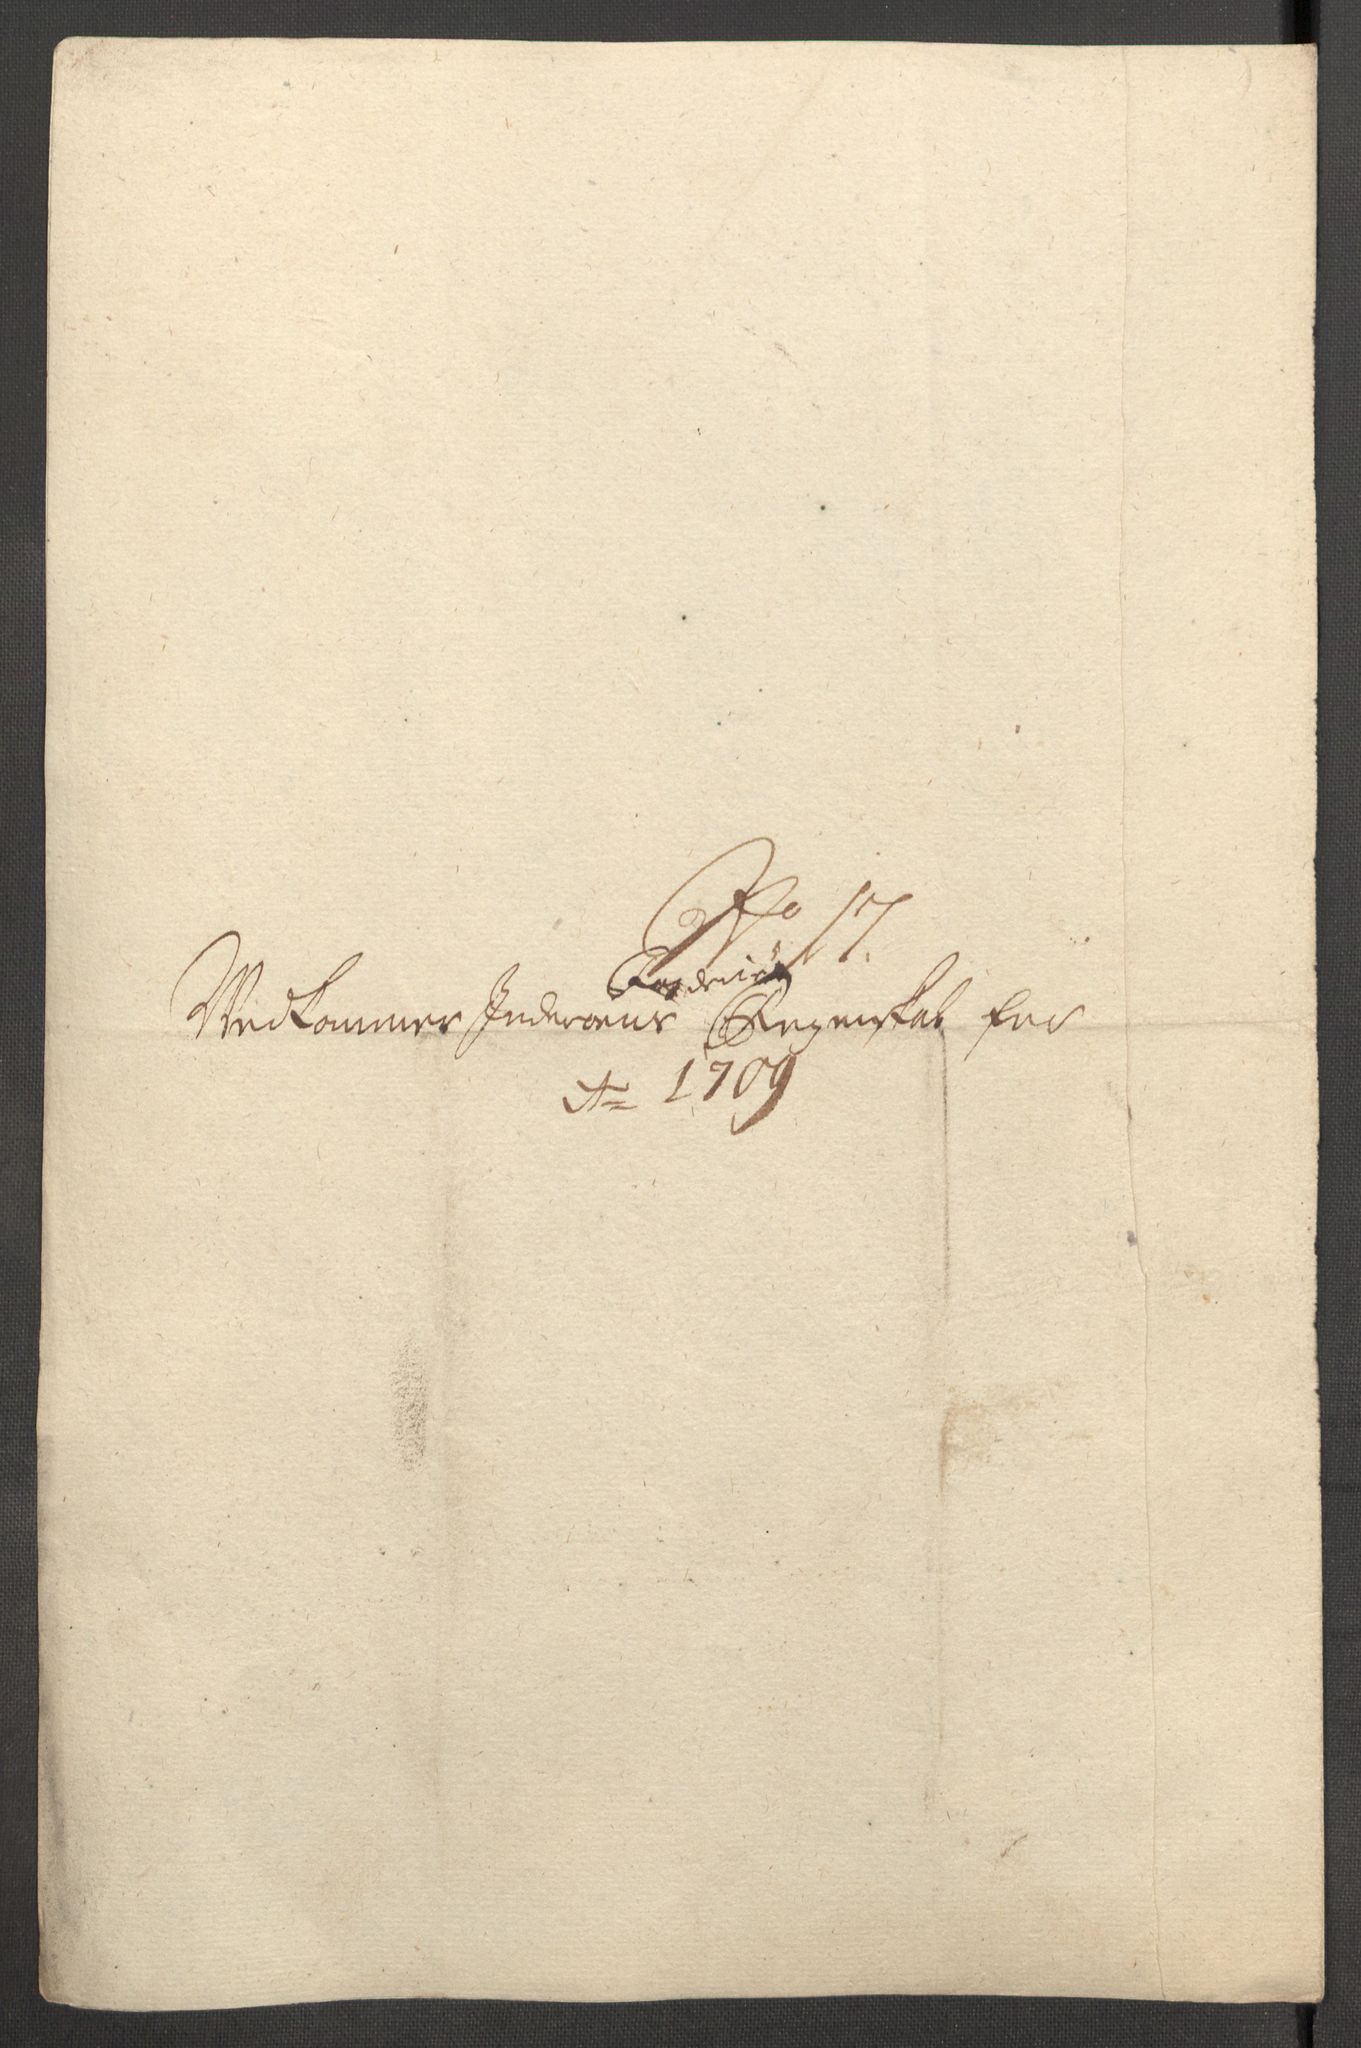 No 17.
Fogderiets
Vedkommer Inderøens Regenskab for
Ao 1709